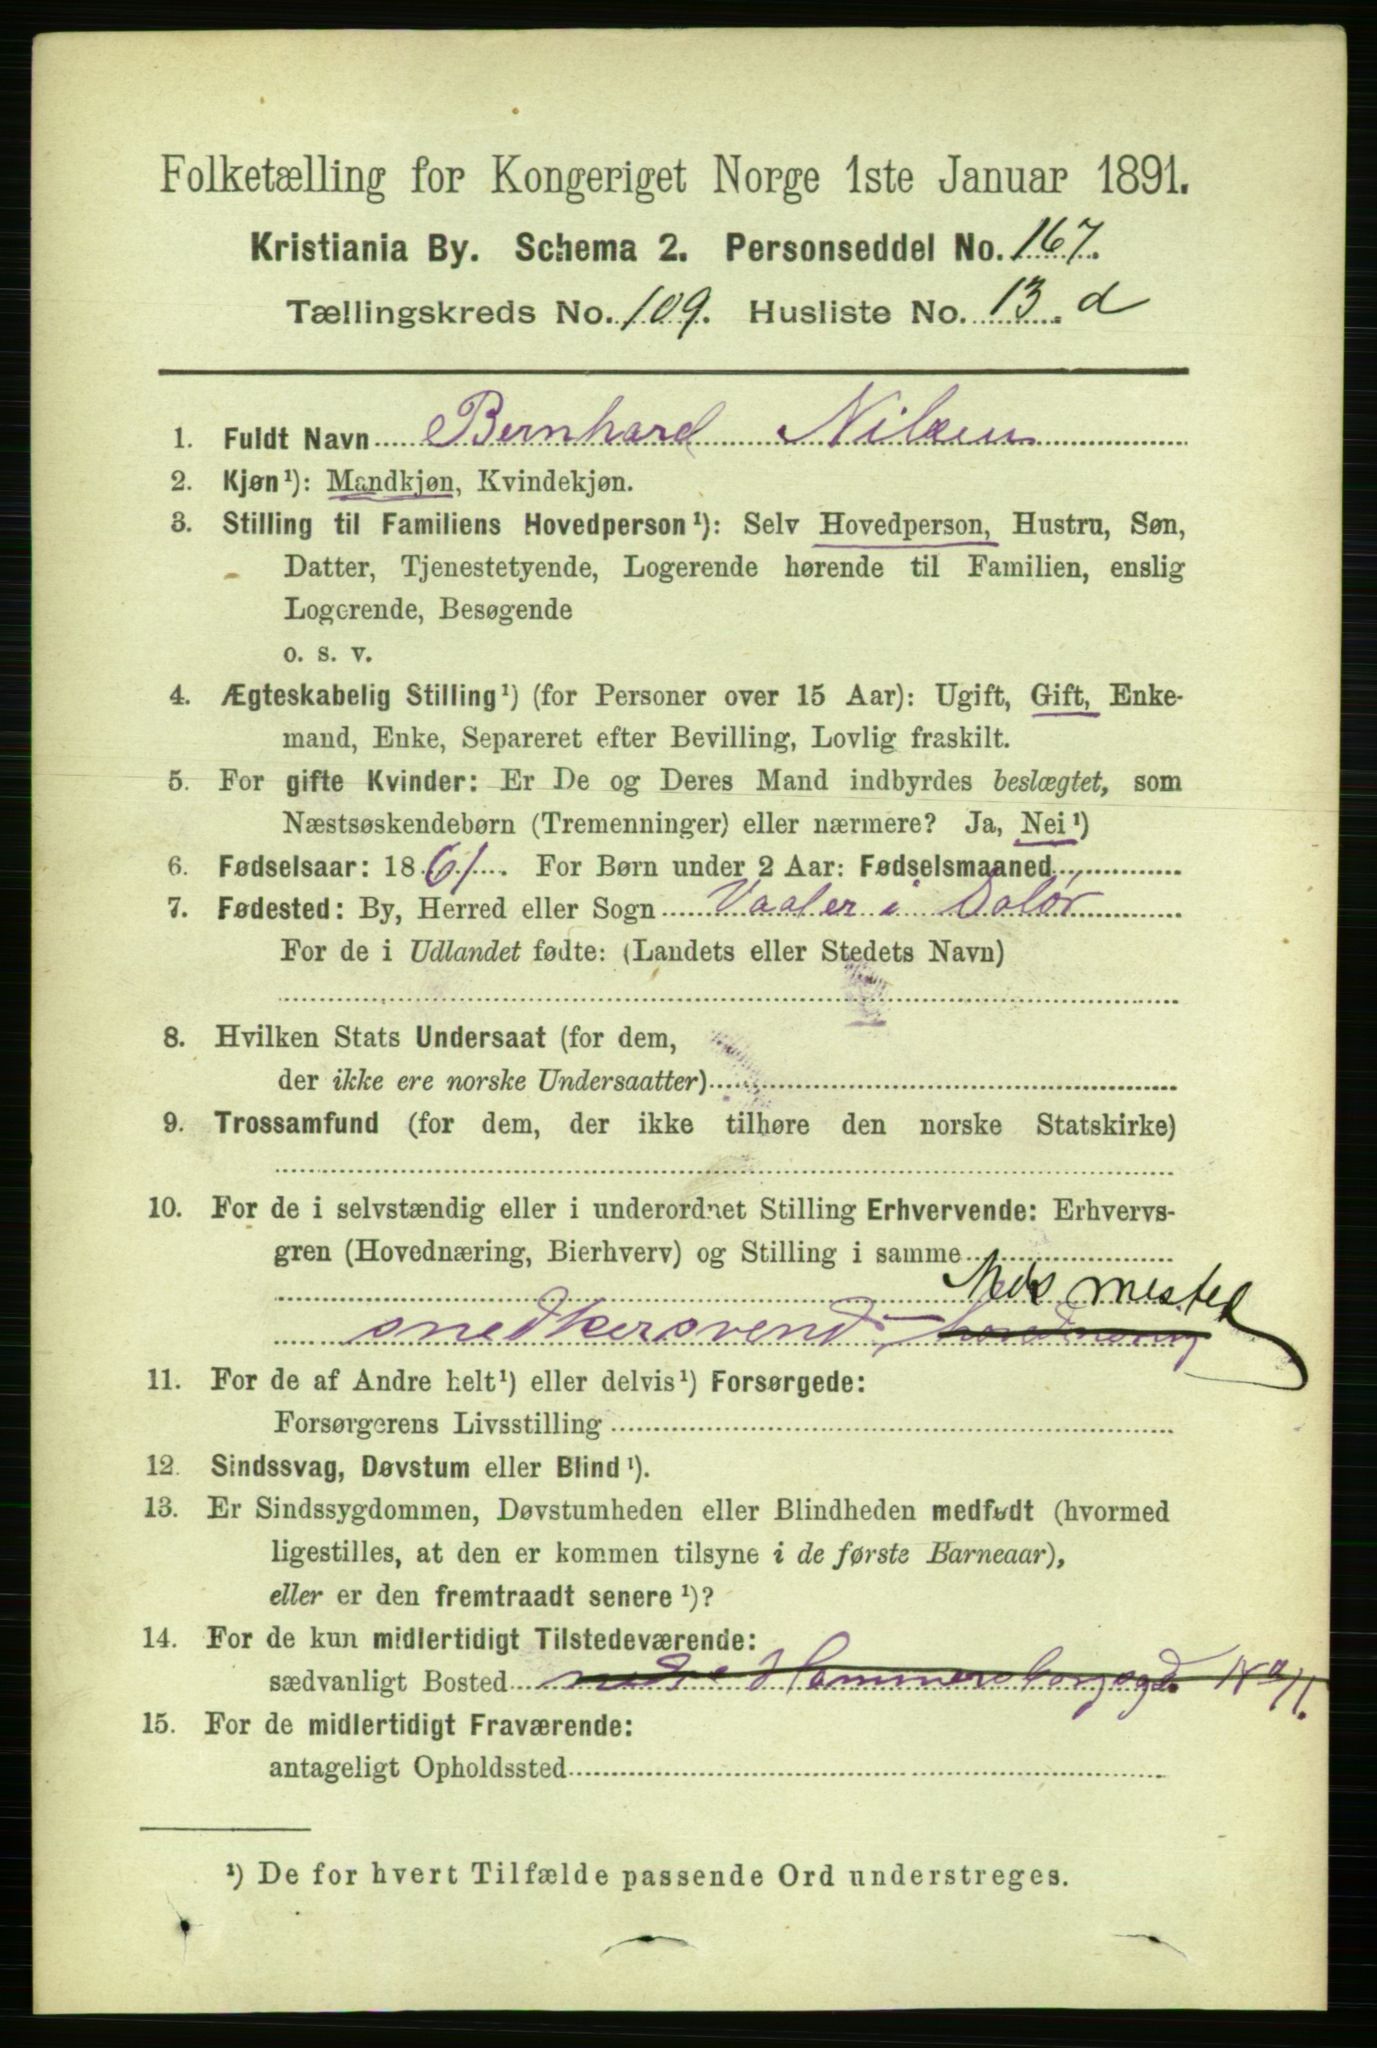 Folketælling for Kongeriget Norge 1ste Januar 1891.
Kristiania By. Schema 2. Personseddel No. 167.
Tællingskreds No. 109. Husliste No. 13. d
1. Fuldt Navn Bernhard Nilsen
2. Kjøn¹): Mandkjøn, Kvindekjøn.
3. Stilling til Familiens Hovedperson¹): Selv Hovedperson, Hustru, Søn,
Datter, Tjenestetyende, Logerende hørende til Familien, enslig
Logerende, Besøgende
o. s. v.
4. Ægteskabelig Stilling¹) (for Personer over 15 Aar): Ugift, Gift, Enke-
mand, Enke, Separeret efter Bevilling, Lovlig fraskilt.
5. For gifte Kvinder: Er De og Deres Mand indbyrdes beslægtet, som
Næstsøskendebørn (Tremenninger) eller nærmere? Ja, Nei¹)
6. Fødselsaar: 1861. For Børn under 2 Aar: Fødselsmaaned
7. Fødested: By, Herred eller Sogn Vaaler i Solør
For de i Udlandet fødte: (Landets eller Stedets Navn)
8. Hvilken Stats Undersaat (for dem,
der ikke ere norske Undersaatter)
9. Trossamfund (for dem, der ikke tilhøre den norske Statskirke)
10. For de i selvstændig eller i underordnet Stilling Erhvervende: Erhvervs-
gren (Hovednæring, Bierhverv) og Stilling i samme
mester
snedkersvend,
11. For de af Andre helt¹) eller delvis¹) Forsørgede:
Forsørgerens Livsstilling
12. Sindssvag, Døvstum eller Blind¹).
13. Er Sindssygdommen, Døvstumheden eller Blindheden medfødt (hvormed
ligestilles, at den er kommen tilsyne i de første Barneaar),
eller er den fremtraadt senere¹)?
14. For de kun midlertidigt Tilstedeværende:
sædvanligt Bosted nedre Hammersborggd. No 11.
15. For de midlertidigt Fraværende:
antageligt Opholdssted
¹) De for hvert Tilfælde passende Ord understreges.